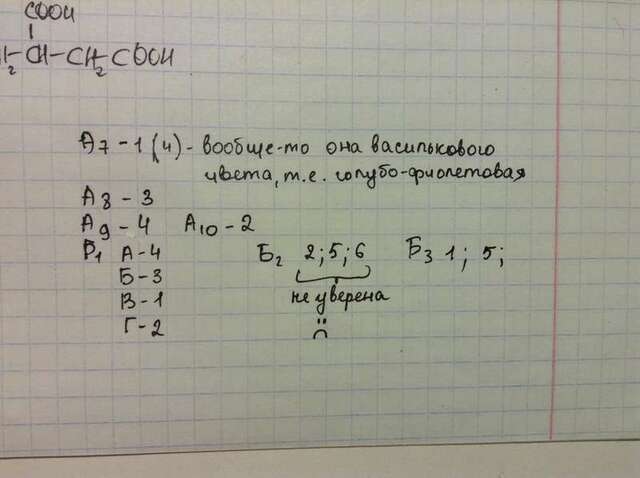 COOH
|
H₂-CH-CH₂COOH
A7 - 1 (4) - вообще-то она василькового
цвета, т.е. голубо-фиолетовая
A8 - 3
A9 - 4 A10 - 2
B1 А-4 Б2 2; 5; 6 Б3 1; 5;
Б-3
В-1 не уверена
Г-2